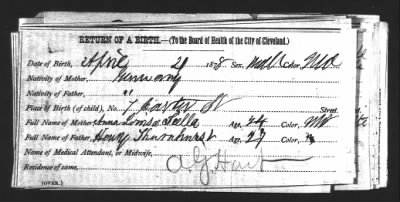 RETURN OF A BIRTH.—(To the Board of Health of the City of Cleveland.)
Date of Birth, April 29 1878 Sex, male Color, W
Nativity of Mother, Germany
Nativity of Father, "
Place of Birth (of child), No. 7 Carter St Street.
Full Name of Mother, Anna Louisa Age, 24 Color, W
Full Name of Father, Henry Age, 27 Color, "
Name of Medical Attendant, or Midwife,
Residence of same, A. G. Hart
(OVER.)